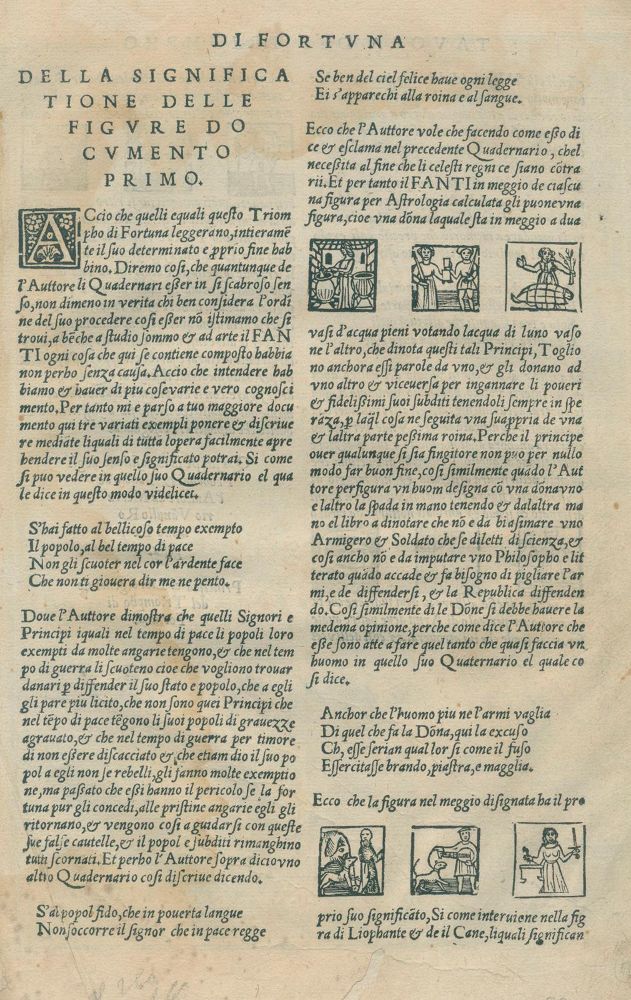 DI FORTVNA
DELLA SIGNIFICA
TIONE DELLE
FIGVRE DO
CVMENTO
PRIMO.
ACcio che quelli equali questo Triom
pho di Fortuna leggerano, intieramē
te il suo determinato e pprio fine hab
bino. Diremo cosi, che quantunque de
l'Auttore li Quadernari esser in si scabroso sen
so, non dimeno in verita chi ben considera l'ordi
ne del suo procedere cosi esser nō istimamo che si
troui, a bēche a studio sommo & ad arte il FAN
TI ogni cosa che qui se contiene composto babbia
non perho senza causa. Accio che intendere hab
biamo & hauer di piu cose varie e vero cognosci
mento, Per tanto mi e parso a tuo maggiore docu
mento qui tre variati exempli ponere & discriue
re mediate liquali di tutta lopera facilmente apre
hendere il suo senso e significato potrai. Si come
si puo vedere in quello suo Quadernario el qua
le dice in questo modo videlicet.
S'hai fatto al bellicoso tempo exempto
Il popolo, al bel tempo di pace
Non gli scuoter nel cor l'ardente face
Che non ti giouera dir me ne pento.
Doue l'Auttore dimostra che quelli Signori e
Principi iquali nel tempo di pace li popoli loro
exempti da molte angarie tengono, & che nel tem
po di guerra li scuoteno cioe che vogliono trouar
danari p diffender il suo stato e popolo, che a egli
gli pare piu licito, che non sono quei Principi che
nel tēpo di pace tēgono li suoi popoli di grauezze
agrauato, & che nel tempo di guerra per timore
di non essere discacciato & che etiam dio il suo po
pol a egli non se rebelli, gli fanno molte exemptio
ne, ma passato che essi hanno il pericolo se la for
tuna pur gli concedi, alle pristine angarie egli gli
ritornano, & vengono cosi a guidarsi con queste
sue false cautelle, & il popol e subditi rimanghino
tutti scornati. Et perho l'Auttore sopra dicio vno
altro Quadernario cosi discriue dicendo.
S'al popol fido, che in pouerta langue
Non soccorre il signor che in pace regge
Se ben del ciel felice haue ogni legge
Ei s'apparechi alla roina e al sangue.
Ecco che l'Auttore vole che facendo come esso di
ce & esclama nel precedente Quadernario, chel
necessita al fine che li celesti regni ce siano cōtra
rii. Et per tanto il FANTI in meggio de ciascu
na figura per Astrologia calculata gli pune vna
figura, cioe vna dōna laquale sta in meggio a dua
vasi d'acqua pieni votando lacqua di luno vaso
ne l'altro, che dinota questi tali Principi, Toglio
no anchora essi parole da vno, & gli donano ad
vno altro & viceuersa per ingannare li poueri
& fidelissimi suoi subditi tenendoli sempre in spe
rāza, p laql cosa ne seguita vna sua ppria de vna
& laltra parte pessima roina. Perche il principe
ouer qualunque si sia fingitore non puo per nullo
modo far buon fine, cosi similmente quādo l'Aut
tore perfigura vn huom designa cō vna dōna vno
e laltro la spada in mano tenendo & dalaltra ma
no el libro a dinotare che nō e da biasimare vno
Armigero & Soldato che se diletti di scienza, &
cosi ancho nō e da imputare vno Philosopho e lit
terato quādo accade & fa bisogno di pigliare l'ar
mi, e de diffendersi, & la Republica diffenden
do. Cosi similmente di le Dōne si debbe hauere la
medema opinione, perche come dice l'Auttore che
esse sono atte a fare quel tanto che quasi faccia vn
huomo in quello suo Quaternario el quale co
si dice.
Anchor che l'huomo piu ne l'armi vaglia
Di quel che fa la Dōna, qui la excuso
Ch, esse serian qual lor si come il fuso
Essercitasse brando, piastra, e magglia.
Ecco che la figura nel meggio disignata ha il pro
prio suo significato, Si come interuiene nella fig
ra di Liophante & de il Cane, liquali significan